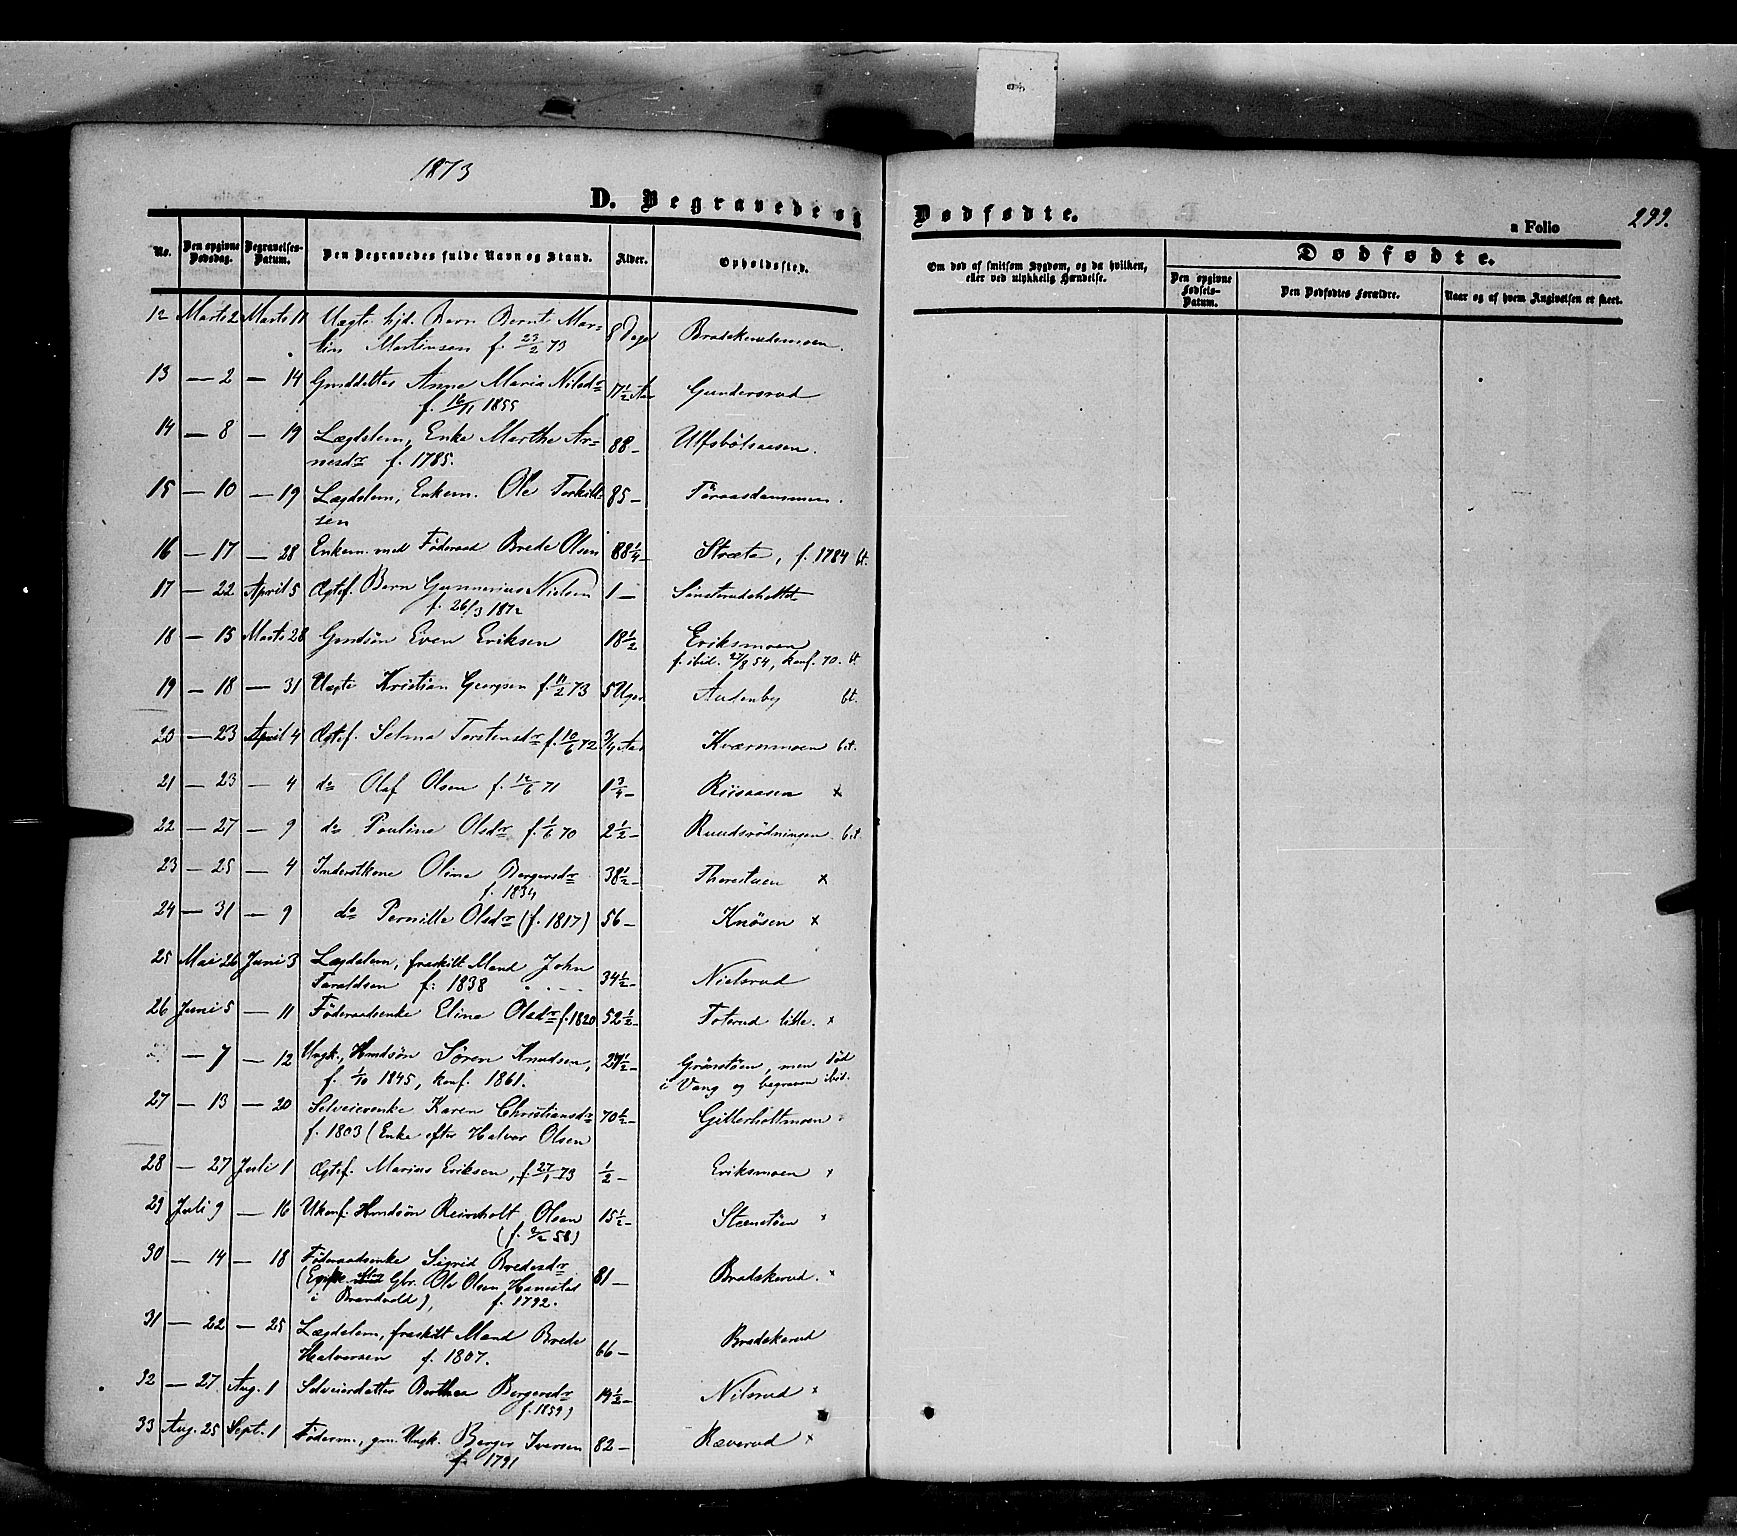 1873
D. Begravede og Dødfødte.
a Folio 299.
No. Den opgivne Dødsdag. Begravelses-Datum. Den Begravedes fulde Navn og Stand. Alder. Opholdssted.
Om død af smitsom Sygdom, og da hvilken, eller ved ulykkelig Hændelse.
Dødfødte.
Den opgivne Fødsels-Datum. Den Dødfødtes Forældre. Naar og af hvem Angivelsen er skeet.
12 Marts 2 Marts 11 Uægte hjd. Barn Bernt Mar= 8 Dage Bradskerudmoen.
tin Martinsen f. 23/2 73
13 — 2 — 14 Gmddatter Anne Maria Nilsdr 17½ Aar Gundersrud
f. 16/11 1855
14 — 8 — 19 Lægdslem, Enke Marthe Ar= 88 — Ulfsbølsaasen.
nesdr f. 1785.
15 — 10 — 19 Lægdslem, Enkem. Ole Torkild 85 —
sen
16 — 17 — 28 Enkem. med Føderaad Brede Olsen 88¼ — Stræte, f. 1784 bt.
17 — 22 April 5 Ægtef. Barn Gunnerius Nielsen 1 —
f. 26/3 1872
18 — 15 Marts 28 Gmdsøn Even Eriksen 18½ Eriksmoen
f. ibid. 27/8 54, konf. 70. bt
19 — 18 — 31 Uægte Kristian Georgsen f. 11/2 73 5 Uger Audenby bt.
20 — 23 April 4 Ægtef. Selma Torstensdr f. 10/6 72 ¾ Aar Kværnmoen bt.
21 — 23 — 4 do Olaf Olsen f. 12/6 71 1¾ — Riisaasen x
22 — 27 — 9 do Pauline Olsdr f. 1/6 70 2½ — Ruudsrødningen bt.
23 — 25 — 4 Inderstkone Oline Bergersdr 38½ — Thorestuen x
f. 1834
24 — 31 — 9 do Pernille Olsdr (f. 1817) 56 — Knøsen x
25 Mai 26 Juni 3 Lægdslem, fraskilt Mand John 34½ — Nielsrud
Taraldsen f: 1838
26 Juni 5 — 11 Føderaadsenke Eline Olsdr f. 1820 52½ — Toterud lille. x
— 7 — 12 Ungk., Hmdsøn Søren Knudsen, 27½ — Grønstøen, men død
f. 1/10 1845, konf. 1861. i Vang og begraven ibid.
27 — 13 — 20 Selveierenke Karen Christiansdr 70½ — Gitterholtmoen
f. 1803 (Enke efter Halvor Olsen
28 — 27 Juli 1 Ægtef. Marius Eriksen, f. 27/1 73 ½ — Eriksmoen x
29 Juli 9 — 16 Ukonf. Hmdsøn Reinholt Olsen 15½ — Stenstøen x
(f. 2/2 58)
30 — 14 — 18 Føderaadsenke Sigrid Bredesdr 81 — Bradskerud. x
(Enke efter Gbr. Ole Olsen Hanestad
i Brandvold), f. 1792.
31 — 22 — 25 Lægdslem, fraskilt Mand Brede 66 — Bradskerud
Halvorsen f. 1807.
32 — 27 Aug. 1 Selveierdatter Berthea Bergersdr 14½ — Nilsrud x
f. 1859)
33 Aug. 25 Sept. 1 Føderm., gm. Ungk. Berger Iversen 82 — Ræverud x
f. 1791